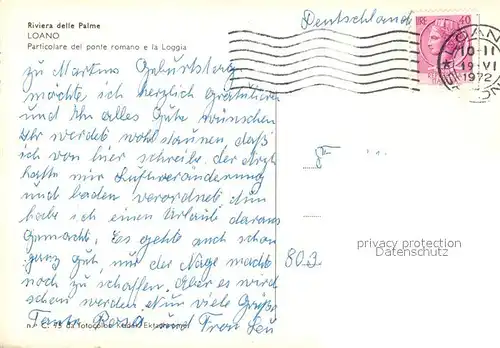 Riviera delle Palme
LOANO
Particolare del ponte romano e la Loggia
Deutschland
IRE 40
LOANO
10-11
19·VI
1972
zu Martins Geburtstag
möchte ich herzlich gratulieren
und Ihn alles Gute wünschen
Ihr werdet wohl staunen, daß
ich von hier schreibe. der Arzt
hatte mir Luftveränderung
und baden verordnet, nun
habe ich einen Urlaub daraus
gemacht. Es geht auch schon
ganz gut, nur der Magen macht
noch zu schaffen. Aber es wird
schon werden. Nun viele Grüße
Tante Rosa und Frau
803
privacy protection
Datenschutz
Fotocolor Kodak Ektachrome